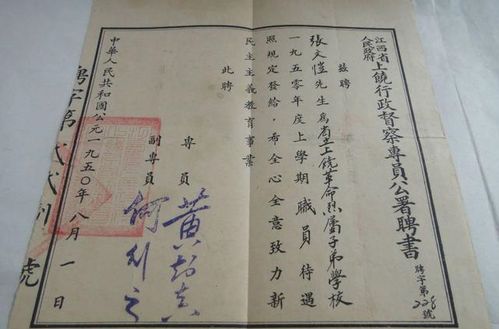 江西省人民政府上饒行政督察專員公署聘書
聘字第228號
茲聘
張文愷先生為省立上饒革命烈屬子弟學校
一九五零年度上學期職員待遇
照規定發給,希全心全意致力新
民主主義教育事業
此聘
專員 黃
副專員 何
中華人民共和國公元一九五〇年八月一日
字第貳貳 號